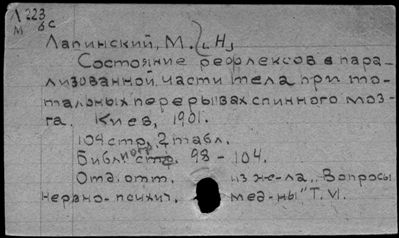 Л 223
М 6с
Лапинский, М. [Н]
Состояние рефлексов в пара-
лизованной части тела при то-
тальных перерывах спинного моз-
га. Киев, 1901.
104 стр, 2 табл.
Библиогр. стр. 98-104.
Отд. отт. из ж-ла „Вопросы
нервно-психич. мед-ны" Т. VI.